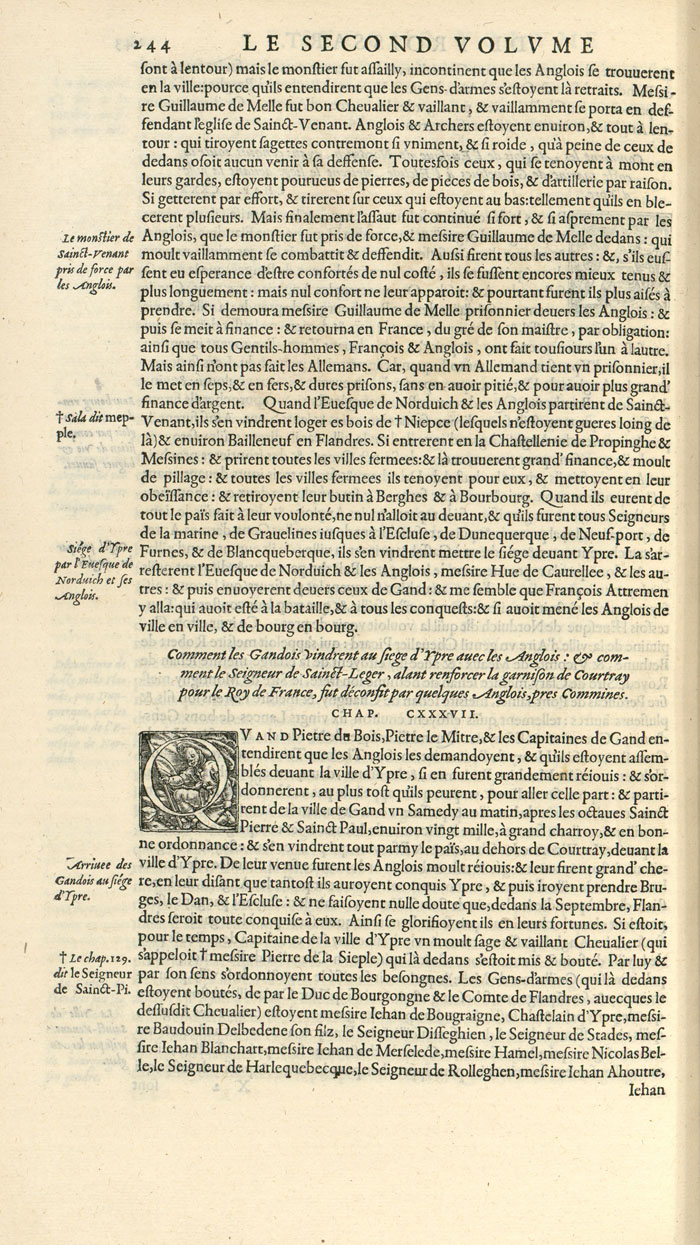 244 LE SECOND VOLVME
ſont à lentour) mais le monſtier fut aſſailly, incontinent que les Anglois ſe trouuerent
en la ville:pource qu'ils entendirent que les Gens-d'armes s'eſtoyent là retraits. Meſsi-
re Guillaume de Melle fut bon Cheualier & vaillant, & vaillamment ſe porta en deſ-
fendant l'egliſe de Sainct-Venant. Anglois & Archers eſtoyent enuiron,& tout à len-
tour : qui tiroyent ſagettes contremont ſi vniment, & ſi roide, qu'à peine de ceux de
dedans oſoit aucun venir à ſa deffenſe. Toutesfois ceux, qui ſe tenoyent à mont en
leurs gardes, eſtoyent pourueus de pierres, de pieces de bois, & d'artillerie par raiſon.
Si getterent par effort, & tirerent ſur ceux qui eſtoyent au bas:tellement qu'ils en ble-
cerent pluſieurs. Mais finalement l'aſſaut fut continué ſi fort, & ſi aſprement par les
Le monſtier de
Sainct-Venant
pris de force par
les Anglois.
Anglois, que le monſtier fut pris de force,& meſsire Guillaume de Melle dedans : qui
moult vaillamment ſe combattit & deffendit. Auſsi firent tous les autres : &, s'ils euſ-
ſent eu eſperance d'eſtre confortés de nul coſté, ils ſe fuſſent encores mieux tenus &
plus longuement : mais nul confort ne leur apparoit: & pourtant furent ils plus aiſés à
prendre. Si demoura meſsire Guillaume de Melle priſonnier deuers les Anglois : &
puis ſe meit à finance : & retourna en France, du gré de ſon maiſtre, par obligation:
ainſi que tous Gentils-hommes, François & Anglois, ont fait touſiours l'un à lautre.
Mais ainſi n'ont pas fait les Allemans. Car, quand vn Allemand tient vn priſonnier,il
le met en ſeps,& en fers,& dures priſons, ſans en auoir pitié,& pour auoir plus grand'
finance d'argent. Quand l'Eueſque de Norduich & les Anglois partirent de Sainct-
† Sala dit mep-
ple.
Venant,ils s'en vindrent loger es bois de † Niepce (leſquels n'eſtoyent gueres loing de
là)& enuiron Bailleneuf en Flandres. Si entrerent en la Chaſtellenie de Propinghe &
Meſsines : & prirent toutes les villes fermees:& là trouuerent grand' finance,& moult
de pillage : & toutes les villes fermees ils tenoyent pour eux, & mettoyent en leur
obeïſſance : & retiroyent leur butin à Berghes & à Bourbourg. Quand ils eurent de
tout le païs fait à leur voulonté,ne nul n'alloit au deuant,& qu'ils furent tous Seigneurs
de la marine, de Grauelines iuſques à l'Eſcluſe, de Dunequerque, de Neuf-port, de
Siége d'Ypre
par l'Eueſque de
Norduich et ſes
Anglois.
Furnes, & de Blancqueberque, ils s'en vindrent mettre le ſiége deuant Ypre. La s'ar-
reſterent l'Eueſque de Norduich & les Anglois, meſsire Hue de Caurellee, & les au-
tres : & puis enuoyerent deuers ceux de Gand: & me ſemble que François Attremen
y alla:qui auoit eſté à la bataille,& à tous les conqueſts:& ſi auoit mené les Anglois de
ville en ville, & de bourg en bourg.
Comment les Gandois vindrent au ſiege d'Ypre auec les Anglois : & com-
ment le Seigneur de Sainct-Leger, alant renforcer la garniſon de Courtray
pour le Roy de France, fut déconfit par quelques Anglois,pres Commines.
CHAP. CXXXVII.
QVAND Pietre du Bois,Pietre le Mitre,& les Capitaines de Gand en-
tendirent que les Anglois les demandoyent, & qu'ils eſtoyent aſſem-
blés deuant la ville d'Ypre, ſi en furent grandement réiouis : & s'or-
donnerent, au plus toſt qu'ils peurent, pour aller celle part : & parti-
rent de la ville de Gand vn Samedy au matin,apres les octaues Sainct
Pierre & Sainct Paul,enuiron vingt mille,à grand charroy,& en bon-
ne ordonnance : & s'en vindrent tout parmy le païs,au dehors de Courtray,deuant la
Arriuee des
Gandois au ſiége
d'Ypre.
ville d'Ypre. De leur venue furent les Anglois moult réiouis:& leur firent grand' che-
re,en leur diſant que tantoſt ils auroyent conquis Ypre, & puis iroyent prendre Bru-
ges, le Dan, & l'Eſcluſe : & ne faiſoyent nulle doute que,dedans la Septembre, Flan-
dres ſeroit toute conquiſe à eux. Ainſi ſe glorifioyent ils en leurs fortunes. Si eſtoit,
pour le temps, Capitaine de la ville d'Ypre vn moult ſage & vaillant Cheualier (qui
† Le chap. 129.
dit le Seigneur
de Sainct-Pi.
s'appeloit † meſsire Pierre de la Sieple) qui là dedans s'eſtoit mis & bouté. Par luy &
par ſon ſens s'ordonnoyent toutes les beſongnes. Les Gens-d'armes (qui là dedans
eſtoyent boutés, de par le Duc de Bourgongne & le Comte de Flandres, auecques le
deſſuſdit Cheualier) eſtoyent meſsire Iehan de Bougraigne, Chaſtelain d'Ypre,meſsi-
re Baudouin Delbedene ſon filz, le Seigneur Diſſeghien, le Seigneur de Stades, meſ-
ſire Iehan Blanchart,meſsire Iehan de Merſelede,meſsire Hamel,meſsire Nicolas Bel-
le,le Seigneur de Harlequebecque,le Seigneur de Rolleghen,meſsire Iehan Ahoutre,
Iehan